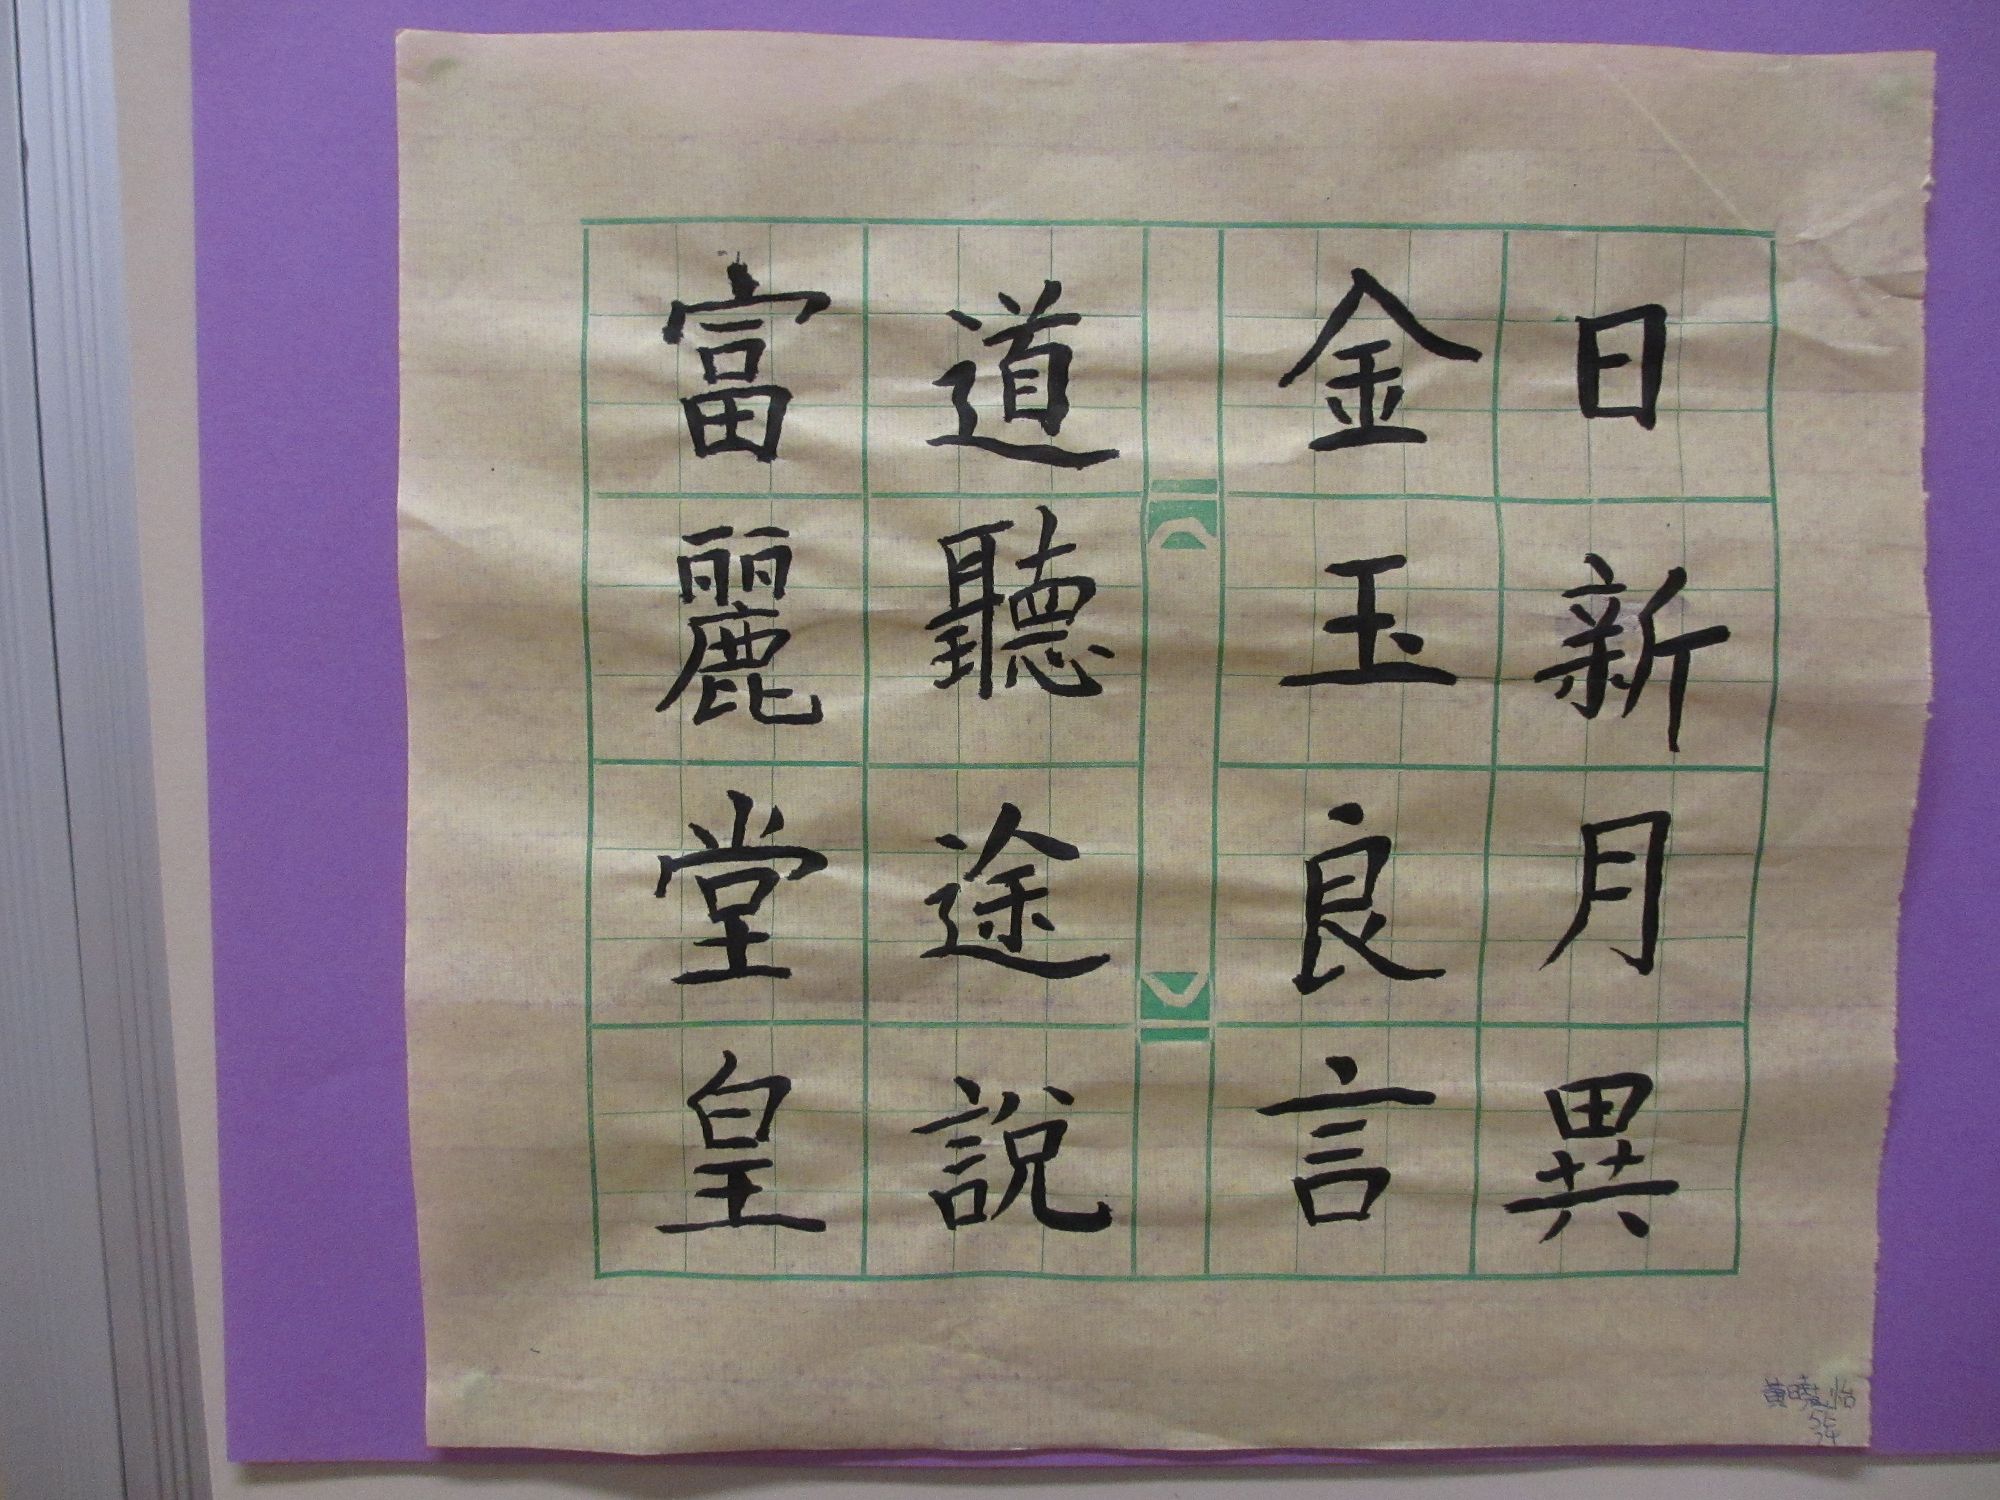 日新月異
金玉良言
道聽途說
富麗堂皇
黃曉怡